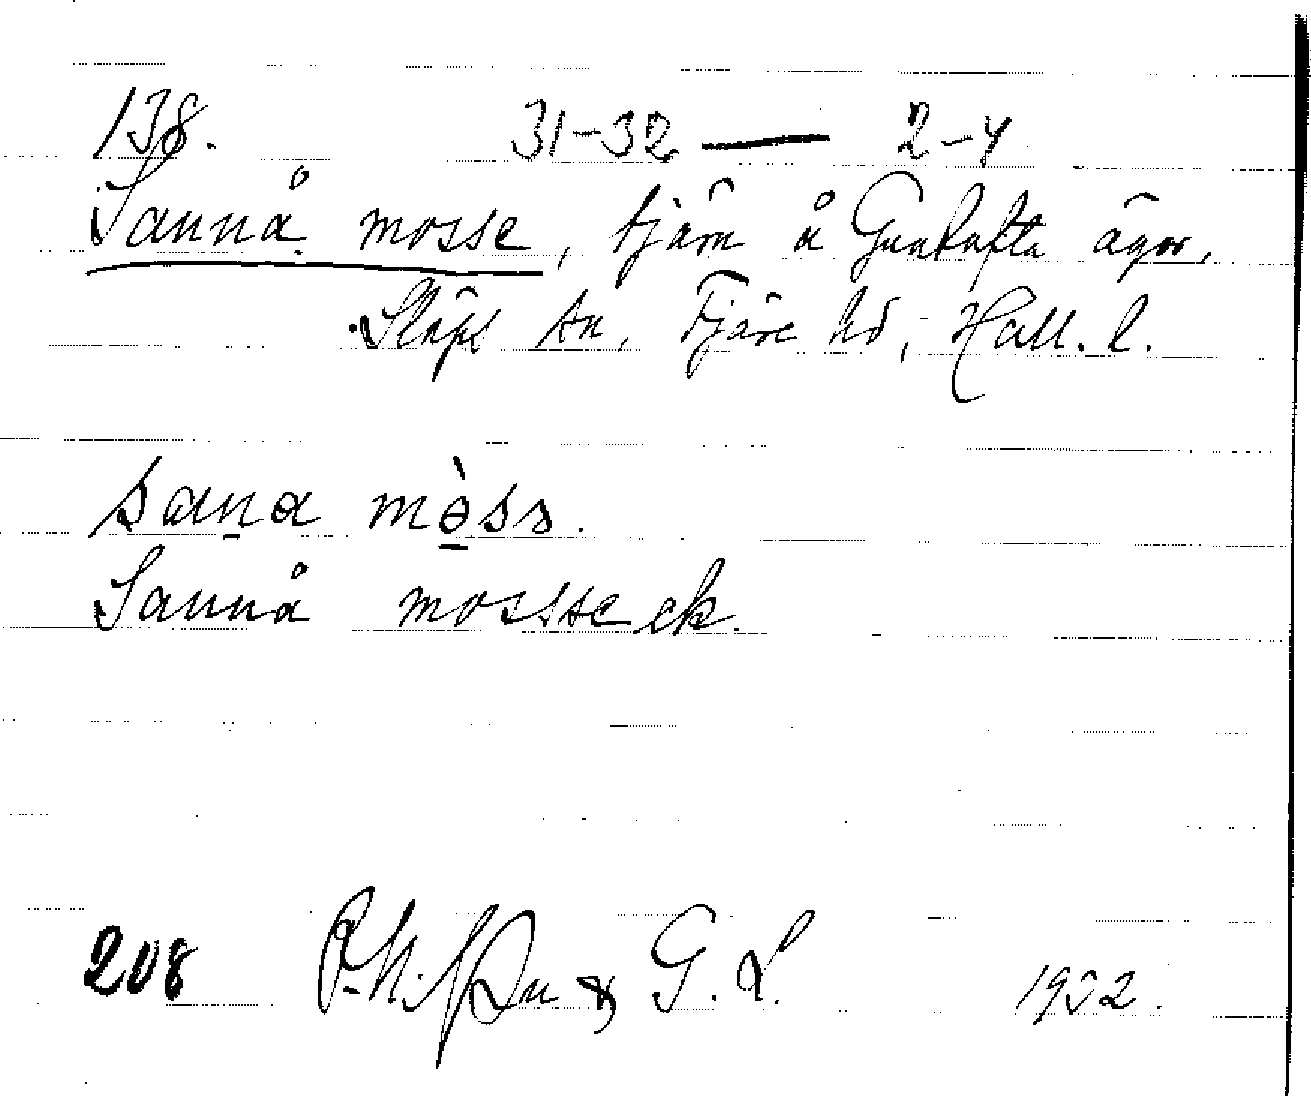 138. 31-32 — 2-4
Sannå mosse, tjärn å Guntofta ägor,
Släps sn, Fjäre hd, Hall. l.
sana mòss.
Sannå mosse ek.
208 G. L. 1932.